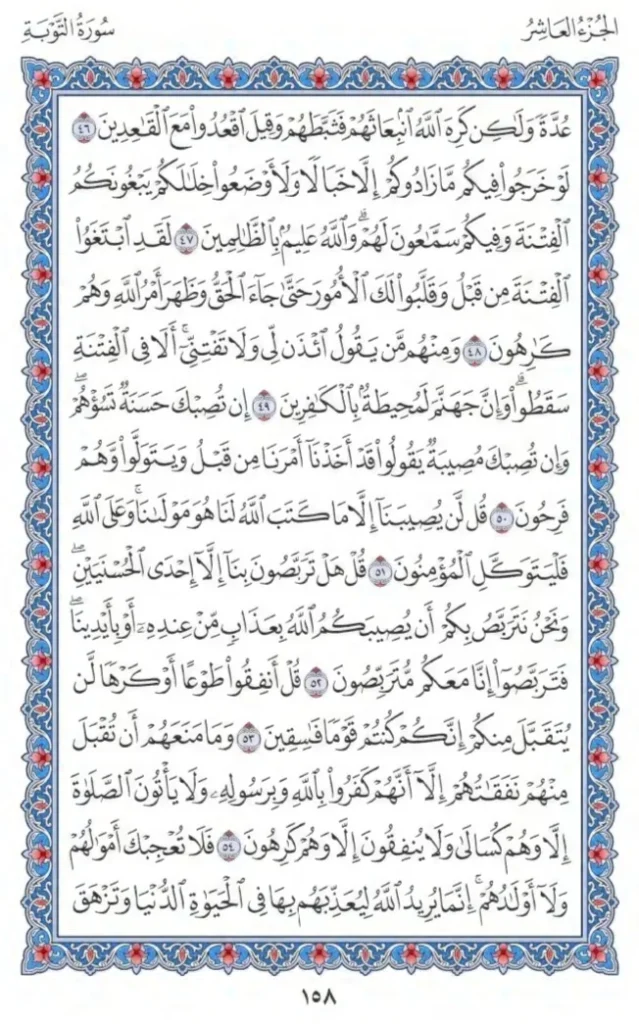 الجُزْءُ العَاشِرُ
سُورَةُ التَّوْبَةِ
عُدَّةً وَلَٰكِن كَرِهَ ٱللَّهُ ٱنۢبِعَاثَهُمْ فَثَبَّطَهُمْ وَقِيلَ ٱقْعُدُواْ مَعَ ٱلْقَٰعِدِينَ ٤٦
لَوْ خَرَجُواْ فِيكُم مَّا زَادُوكُمْ إِلَّا خَبَالًا وَلَأَوْضَعُواْ خِلَٰلَكُمْ يَبْغُونَكُمُ
ٱلْفِتْنَةَ وَفِيكُمْ سَمَّٰعُونَ لَهُمْۗ وَٱللَّهُ عَلِيمُۢ بِٱلظَّٰلِمِينَ ٤٧ لَقَدِ ٱبْتَغَوُاْ
ٱلْفِتْنَةَ مِن قَبْلُ وَقَلَّبُواْ لَكَ ٱلْأُمُورَ حَتَّىٰ جَآءَ ٱلْحَقُّ وَظَهَرَ أَمْرُ ٱللَّهِ وَهُمْ
كَٰرِهُونَ ٤٨ وَمِنْهُم مَّن يَقُولُ ٱئْذَن لِّي وَلَا تَفْتِنِّيٓۚ أَلَا فِي ٱلْفِتْنَةِ
سَقَطُواْۗ وَإِنَّ جَهَنَّمَ لَمُحِيطَةُۢ بِٱلْكَٰفِرِينَ ٤٩ إِن تُصِبْكَ حَسَنَةٌ تَسُؤْهُمْۖ
وَإِن تُصِبْكَ مُصِيبَةٌ يَقُولُواْ قَدْ أَخَذْنَآ أَمْرَنَا مِن قَبْلُ وَيَتَوَلَّواْ وَّهُمْ
فَرِحُونَ ٥٠ قُل لَّن يُصِيبَنَآ إِلَّا مَا كَتَبَ ٱللَّهُ لَنَا هُوَ مَوْلَىٰنَاۚ وَعَلَى ٱللَّهِ
فَلْيَتَوَكَّلِ ٱلْمُؤْمِنُونَ ٥١ قُلْ هَلْ تَرَبَّصُونَ بِنَآ إِلَّآ إِحْدَى ٱلْحُسْنَيَيْنِۖ
وَنَحْنُ نَتَرَبَّصُ بِكُمْ أَن يُصِيبَكُمُ ٱللَّهُ بِعَذَابٖ مِّنْ عِندِهِۦٓ أَوْ بِأَيْدِينَاۖ
فَتَرَبَّصُوٓاْ إِنَّا مَعَكُم مُّتَرَبِّصُونَ ٥٢ قُلْ أَنفِقُواْ طَوْعًا أَوْ كَرْهٗا لَّن
يُتَقَبَّلَ مِنكُمْ إِنَّكُمْ كُنتُمْ قَوْمٗا فَٰسِقِينَ ٥٣ وَمَا مَنَعَهُمْ أَن تُقْبَلَ
مِنْهُمْ نَفَقَٰتُهُمْ إِلَّآ أَنَّهُمْ كَفَرُواْ بِٱللَّهِ وَبِرَسُولِهِۦ وَلَا يَأْتُونَ ٱلصَّلَوٰةَ
إِلَّا وَهُمْ كُسَالَىٰ وَلَا يُنفِقُونَ إِلَّا وَهُمْ كَٰرِهُونَ ٥٤ فَلَا تُعْجِبْكَ أَمْوَٰلُهُمْ
وَلَآ أَوْلَٰدُهُمْۚ إِنَّمَا يُرِيدُ ٱللَّهُ لِيُعَذِّبَهُم بِهَا فِي ٱلْحَيَوٰةِ ٱلدُّنْيَا وَتَزْهَقَ
١٥٨